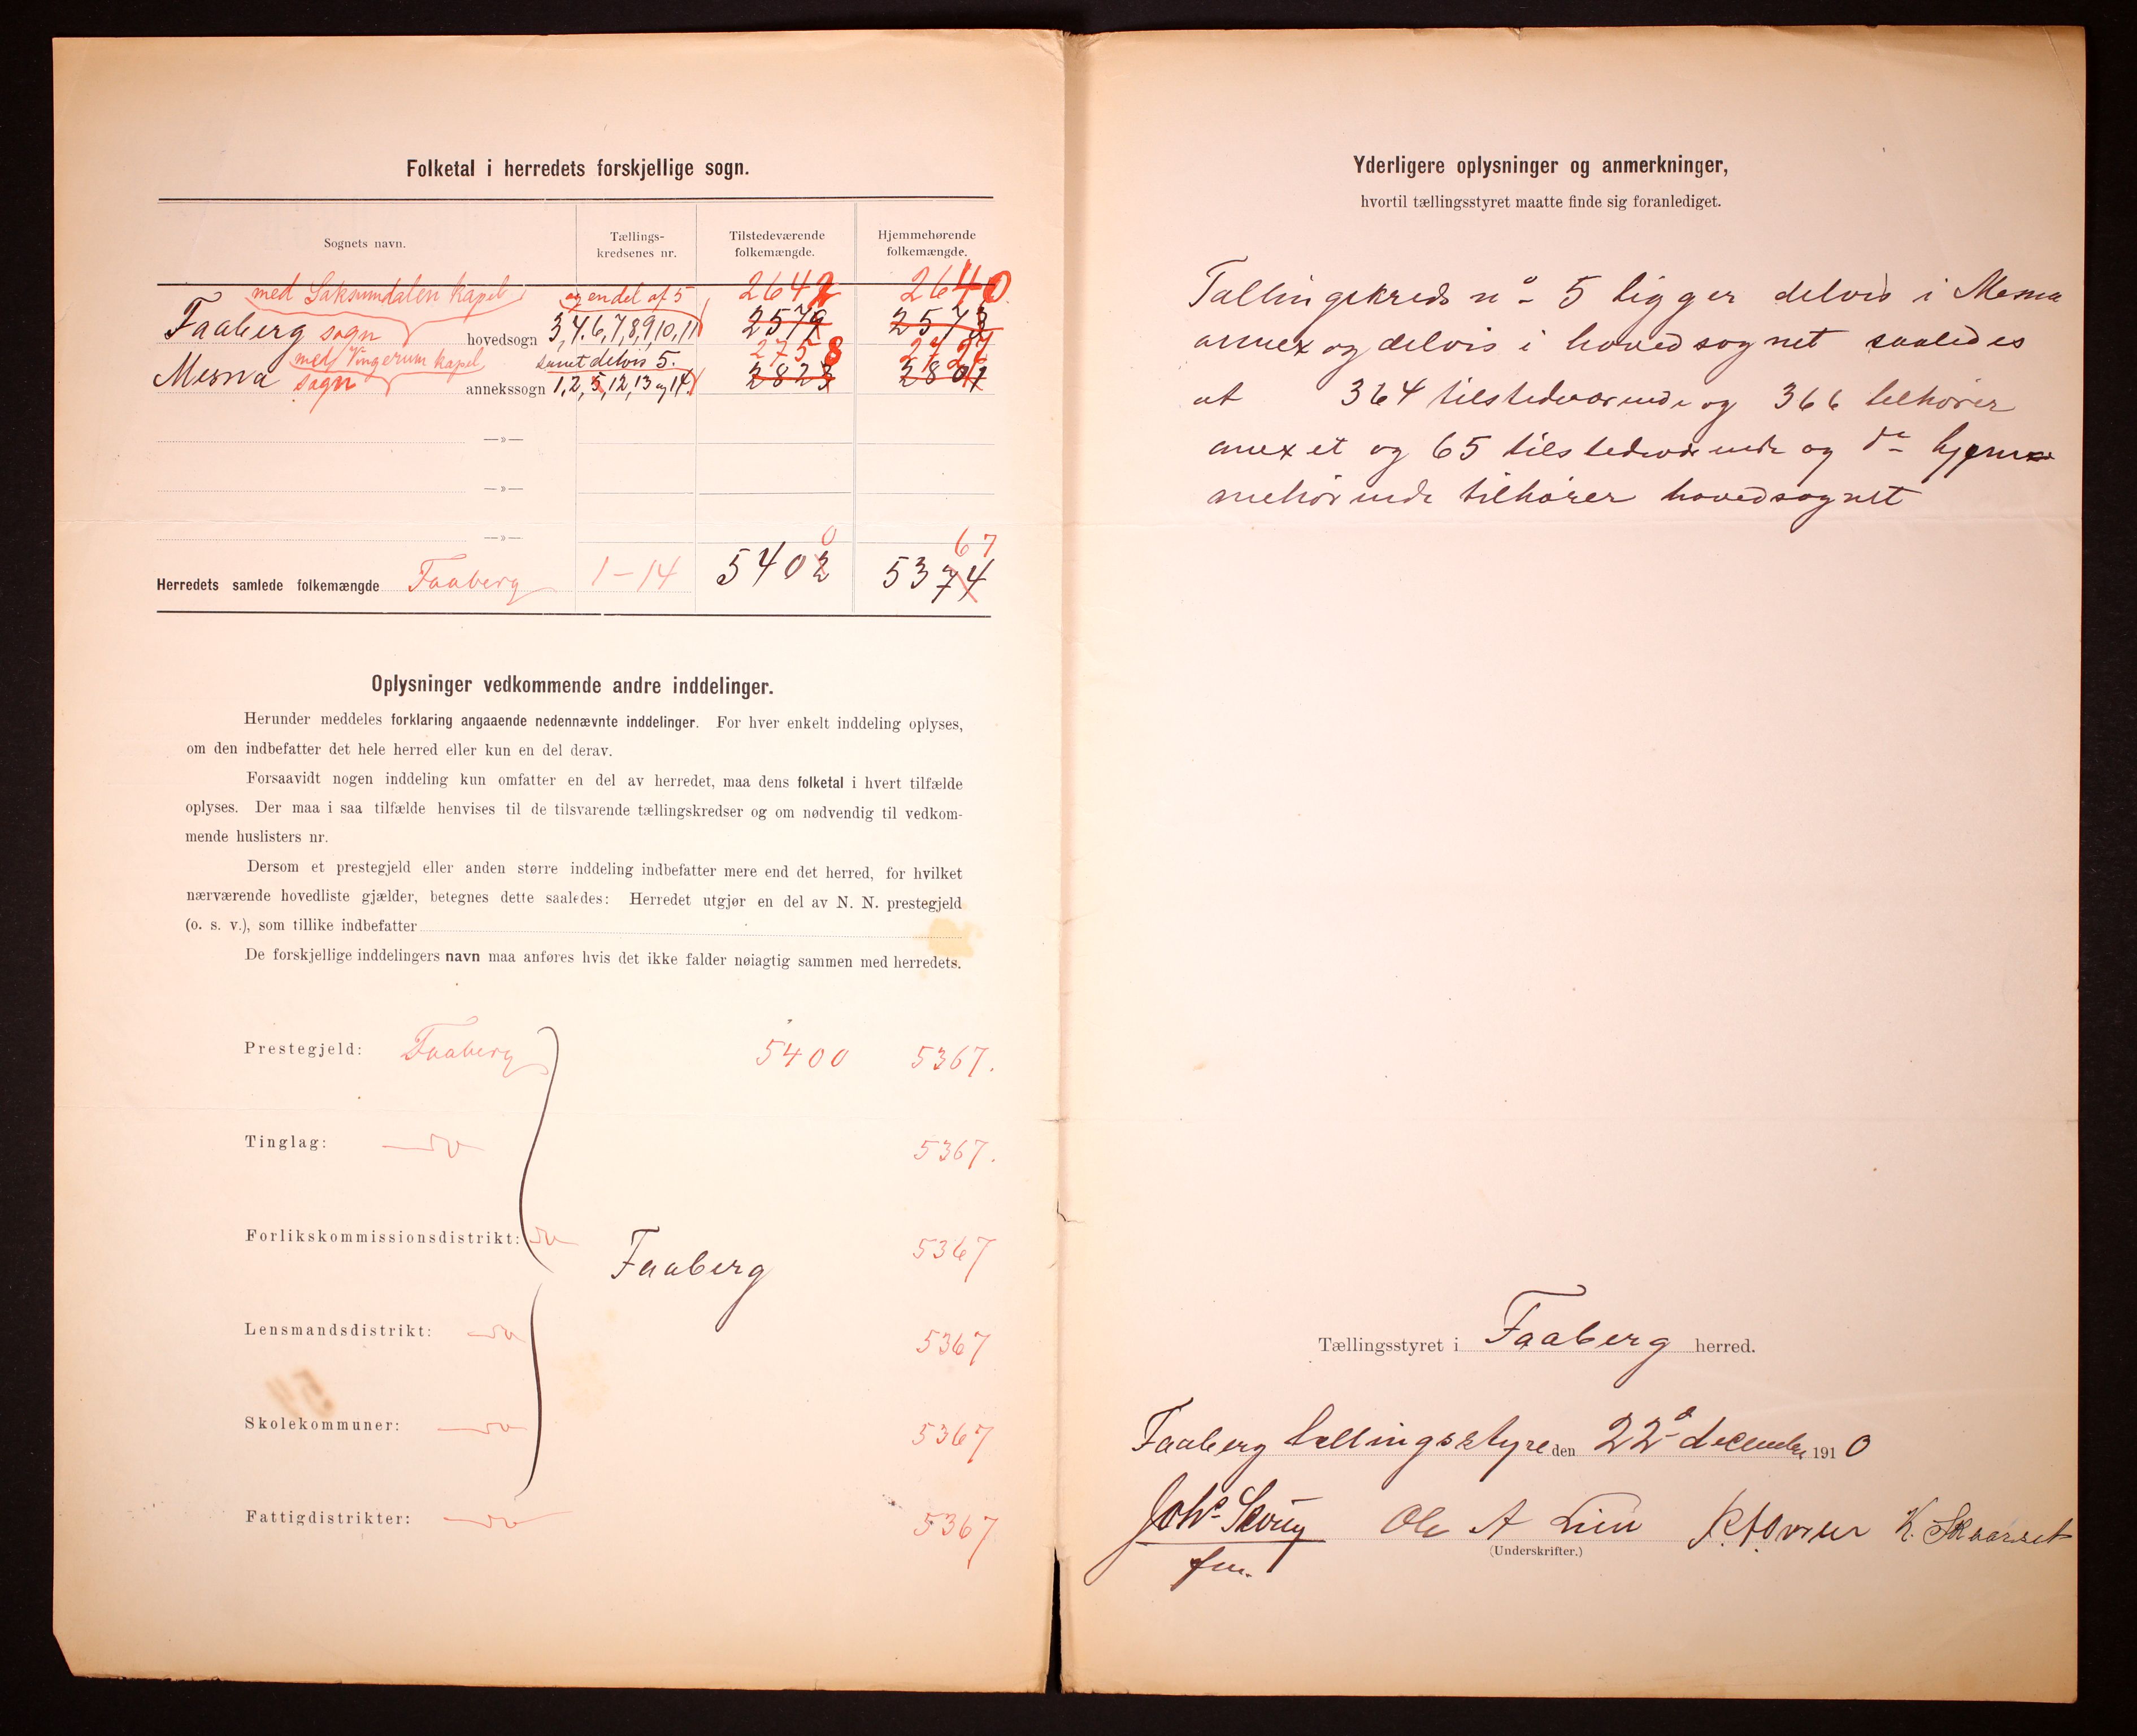 Folketal i herredets forskjellige sogn.
Sognets navn.
Tællings-
kredsenes nr.
Tilstedeværende
folkemængde.
Hjemmehørende
folkemængde.
med Saksumdalen kapel
og en del af 5
2642
2640
Faaberg sogn hovedsogn 3, 4. 6, 7, 8, 9, 10, 11
med Vingerum kapel samt delvis 5.
2758
2727
Mesna sogn annekssogn 1, 2, 5, 12, 13 og 14.
2823
—»—
—»—
—»—
0 67
Herredets samlede folkemængde Faaberg 1-14 5402 5374
Oplysninger vedkommende andre inddelinger.
Herunder meddeles forklaring angaaende nedennævnte inddelinger. For hver enkelt inddeling oplyses,
om den indbefatter det hele herred eller kun en del derav.
Forsaavidt nogen inddeling kun omfatter en del av herredet, maa dens folketal i hvert tilfælde
oplyses. Der maa i saa tilfælde henvises til de tilsvarende tællingskredser og om nødvendig til vedkom-
mende huslisters nr.
Dersom et prestegjeld eller anden større inddeling indbefatter mere end det herred, for hvilket
nærværende hovedliste gjælder, betegnes dette saaledes: Herredet utgjør en del av N. N. prestegjeld
(o. s. v.), som tillike indbefatter
De forskjellige inddelingers navn maa anføres hvis det ikke falder nøiagtig sammen med herredets.
Prestegjeld: Faaberg 5400 5367.
Tinglag: —do— 5367.
Forlikskommissionsdistrikt: do 5367
Faaberg
Lensmandsdistrikt: do 5367
Skolekommuner: do 5367
Fattigdistrikter: do 5367
Yderligere oplysninger og anmerkninger,
hvortil tællingsstyret maatte finde sig foranlediget.
Tællingskreds no 5 ligger delvis i Mesna
annex og delvis i hovedsognet saaledes
at 364 tilstedværende og 366 tilhører
anexet og 65 tilstedværende og do hjem
mehørende tilhører hovedsognet
Tællingsstyret i Faaberg herred.
Faaberg tællingsstyre den 22de december 1910
Johs Skvug Ole A Lien K. Skaarset
(Underskrifter.)
fm.